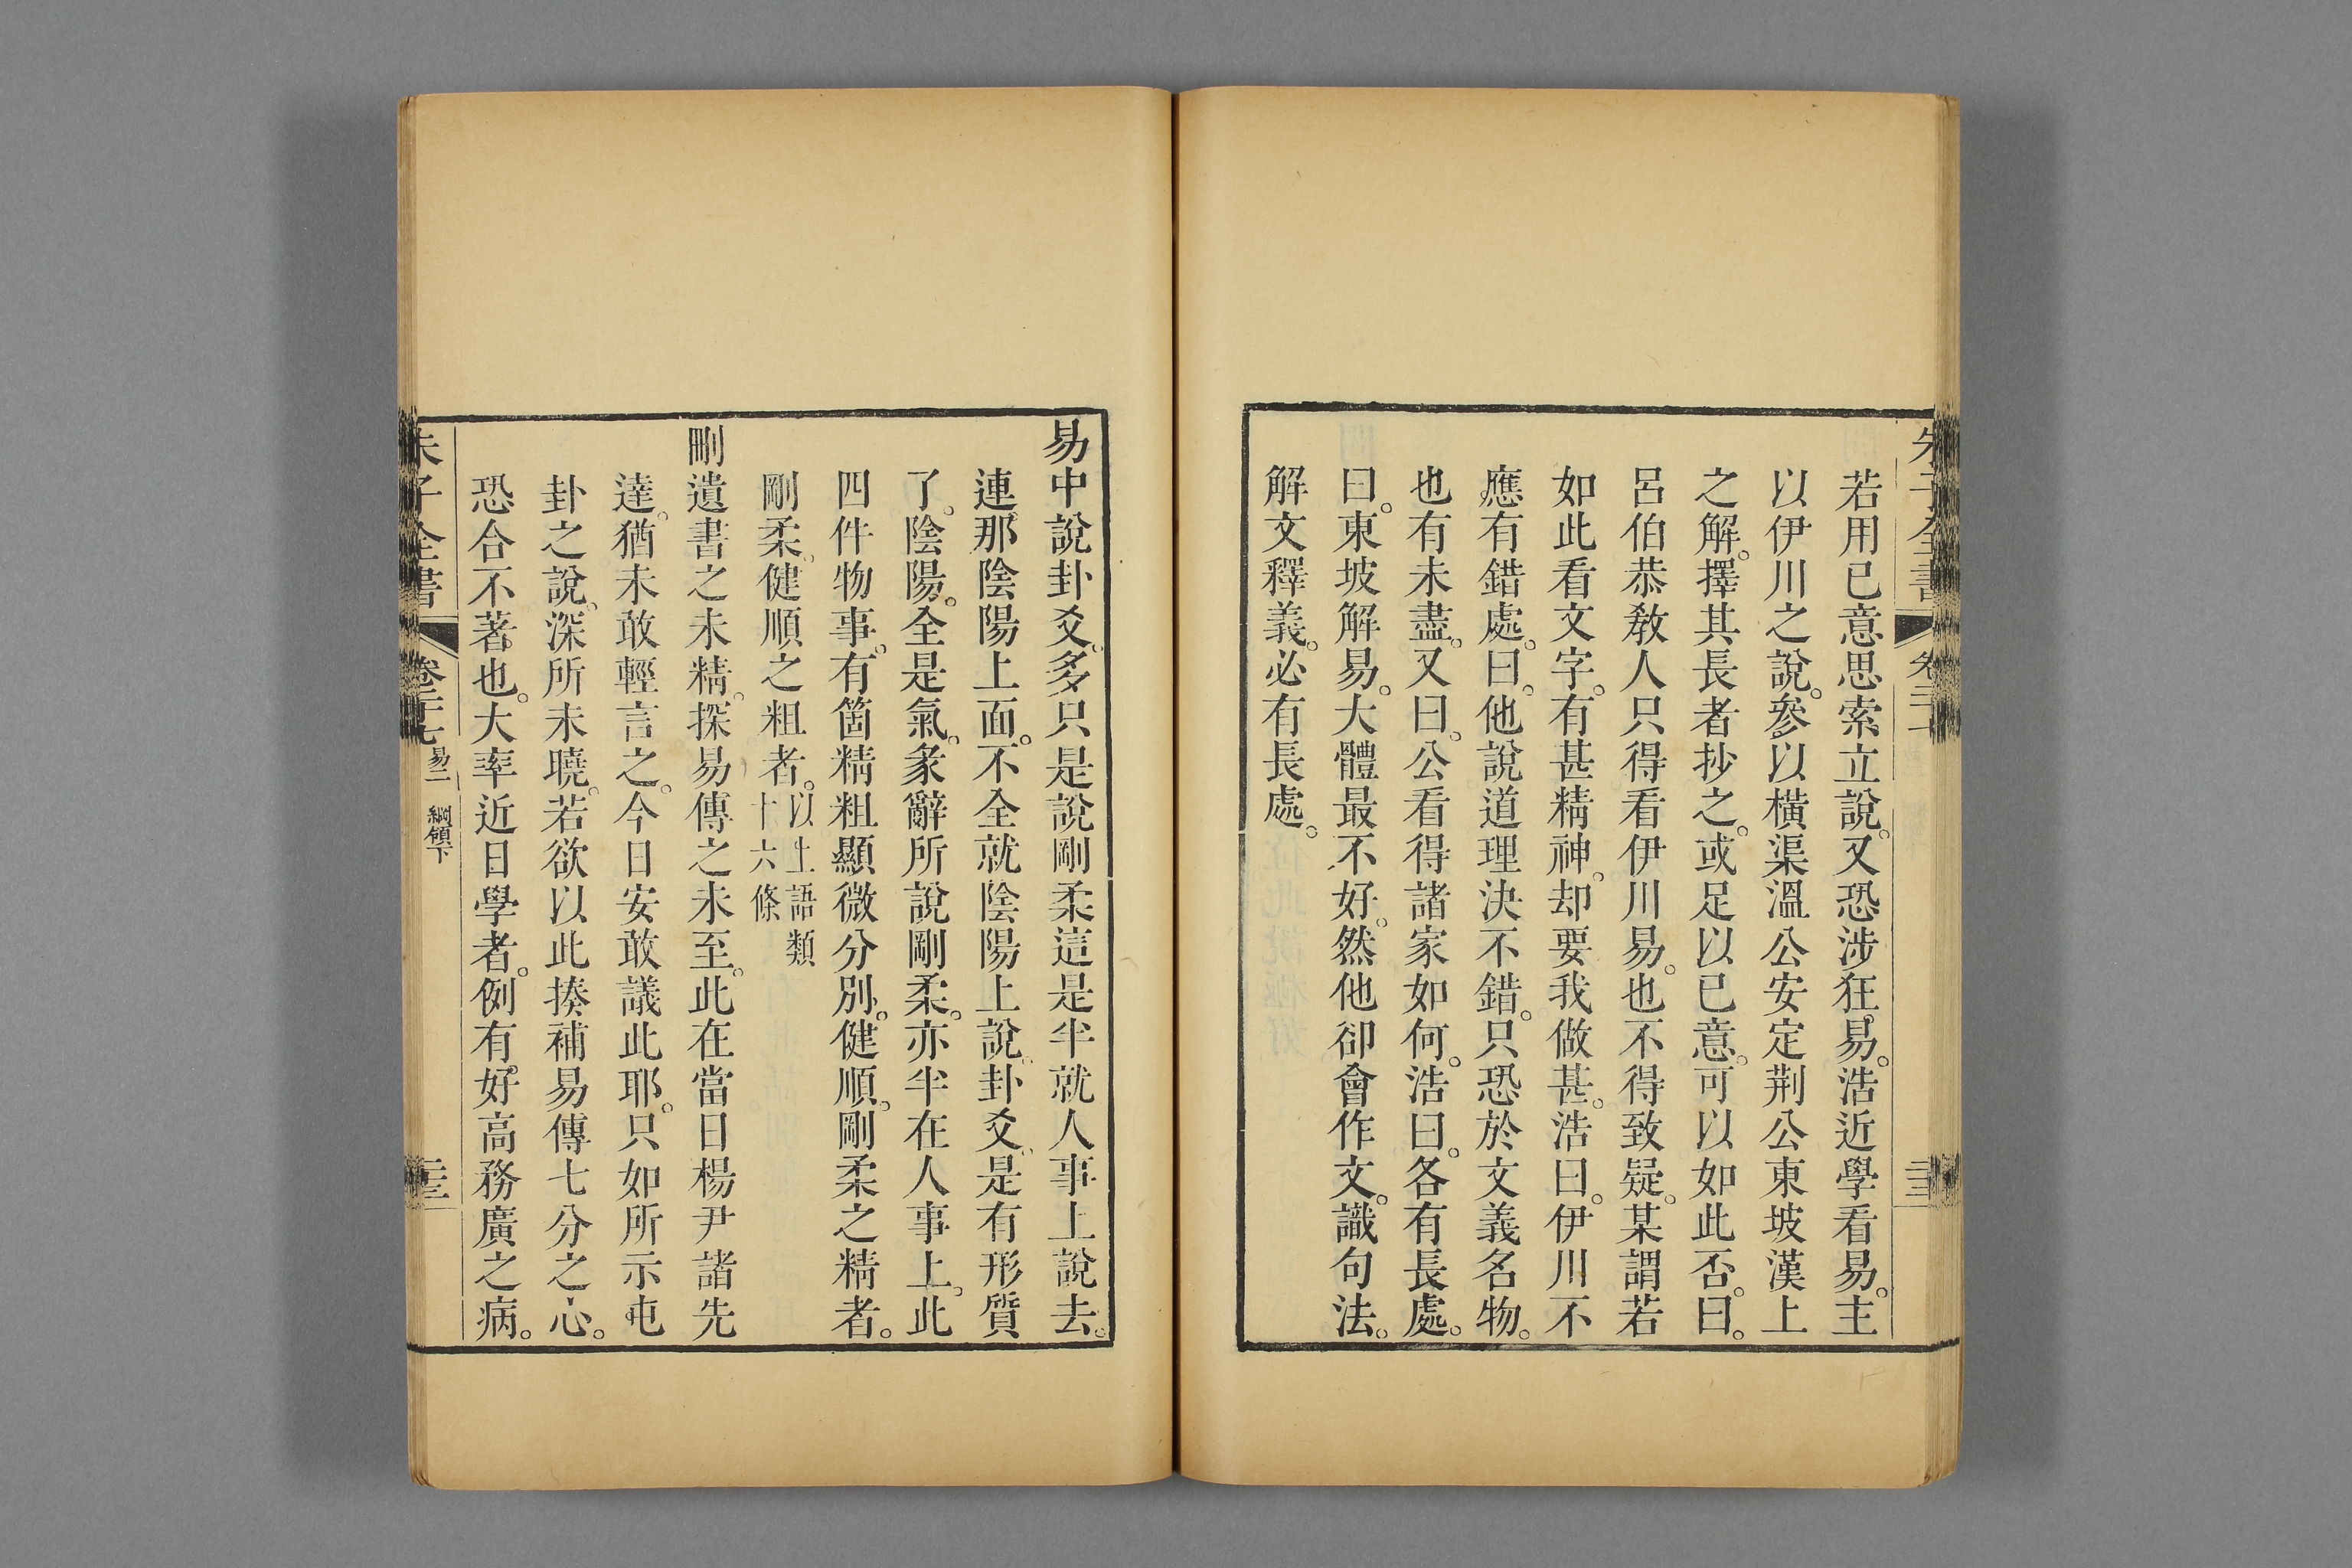 若用已意思索立說。又恐涉狂易。浩近學看易。主
以伊川之說。參以橫渠溫公安定荆公東坡漢上
之解。擇其長者抄之。或足以已意。可以如此否。曰。
呂伯恭敎人只得看伊川易。也不得致疑。某謂若
如此看文字。有甚精神。却要我做甚。浩曰。伊川不
應有錯處。曰。他說道理決不錯。只恐於文義名物。
也有未盡。又曰。公看得諸家如何。浩曰。各有長處。
曰。東坡解易。大體最不好。然他卻會作文。識句法。
解文釋義。必有長處。
易中說卦爻。多只是說剛柔這是半就人事上說去。
連那陰陽上面。不全就陰陽上說。卦爻。是有形質
了。陰陽。全是氣。彖辭所說剛柔。亦半在人事上。此
四件物事。有箇精粗顯微分別。健順。剛柔之精者。
剛柔。健順之粗者。以上語類
十六條
刪遺書之未精。探易傳之未至。此在當日楊尹諸先
達。猶未敢輕言之。今日安敢議此耶。只如所示屯
卦之說。深所未曉。若欲以此揍補易傳七分之心。
恐合不著也。大率近日學者。例有好高務廣之病。
朱子全書
卷二十七
易二
綱領下